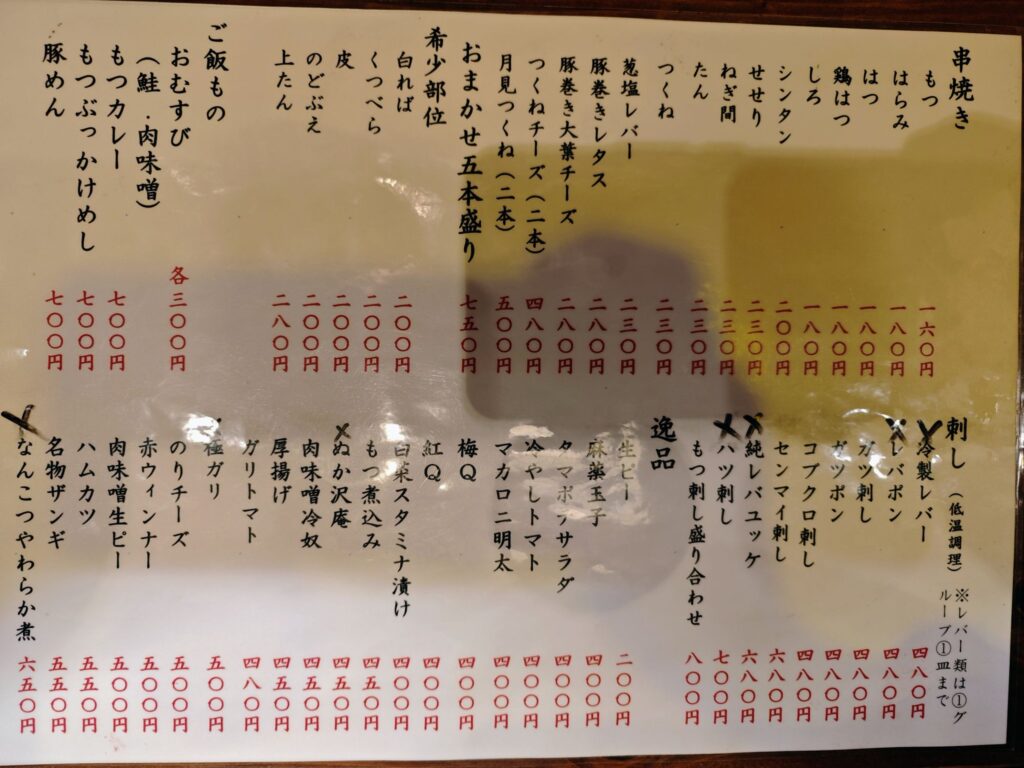 串焼き
もつ 一六〇円
はらみ 一八〇円
はつ 一八〇円
鶏はつ 一八〇円
しろ 一八〇円
シンタン 二〇〇円
せせり 二三〇円
ねぎ間 二三〇円
たん 二三〇円
つくね 二三〇円
葱塩レバー 二三〇円
豚巻きレタス 二八〇円
豚巻き大葉チーズ 二八〇円
つくねチーズ(二本) 四八〇円
月見つくね(二本) 五〇〇円
おまかせ五本盛り 七五〇円
希少部位
白れば 二〇〇円
くつべら 二〇〇円
皮 二〇〇円
のどぶえ 二〇〇円
上たん 二八〇円
ご飯もの
おむすび 各三〇〇円
(鮭・肉味噌)
もつカレー 七〇〇円
もつぶっかけめし 七〇〇円
豚めん 七〇〇円
刺し(低温調理)※レバー類は①グ
ループ①皿まで
冷製レバー 四八〇円
レバポン 四八〇円
ガツ刺し 四八〇円
ガツポン 四八〇円
コブクロ刺し 四八〇円
センマイ刺し 六八〇円
純レバユッケ 六八〇円
ハツ刺し 七〇〇円
もつ刺し盛り合わせ 八〇〇円
逸品
生ピー 二〇〇円
麻薬玉子 四〇〇円
タマポテサラダ 四〇〇円
冷やしトマト 四〇〇円
マカロニ明太 四〇〇円
梅Q 四〇〇円
紅Q 四〇〇円
白菜スタミナ漬け 四〇〇円
もつ煮込み 四五〇円
ぬか沢庵 四五〇円
肉味噌冷奴 四五〇円
厚揚げ 四五〇円
ガリトマト 四八〇円
極ガリ 五〇〇円
のりチーズ 五〇〇円
赤ウィンナー 五〇〇円
肉味噌生ピー 五〇〇円
ハムカツ 五五〇円
名物ザンギ 五五〇円
なんこつやわらか煮 六五〇円